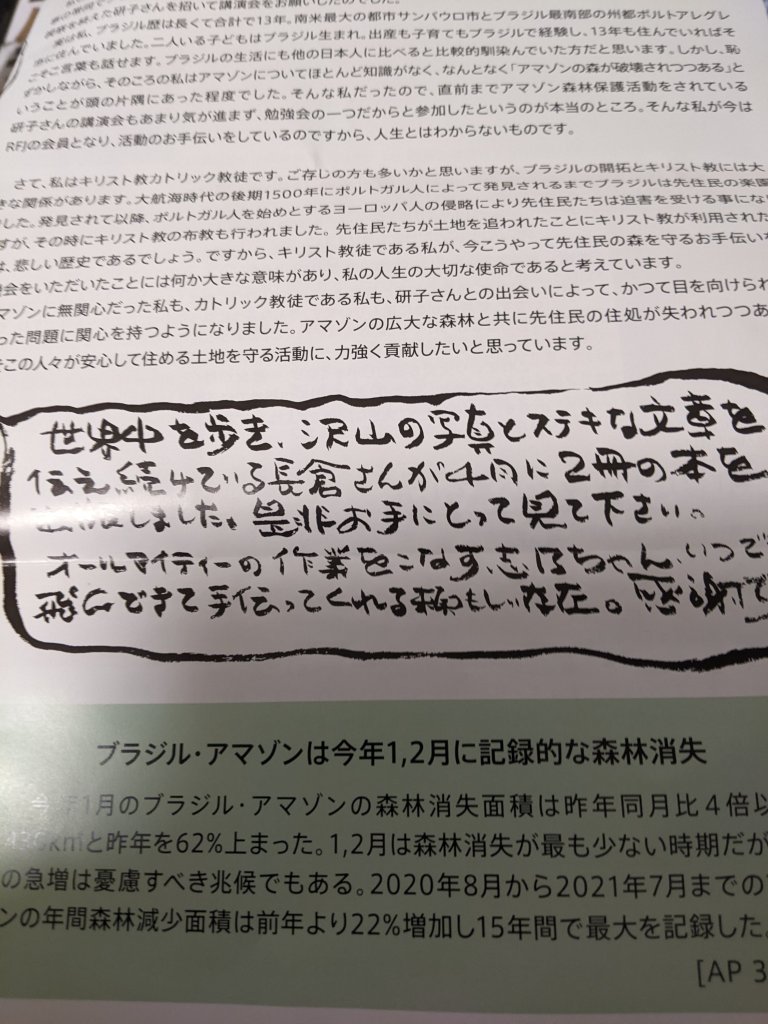 を招いて講演会をお願いしたのでした。
実は私、ブラジル歴は長くて合計で13年。南米最大の都市サンパウロ市とブラジル最南部の州都ポルトアレグレ
に住んでいました。二人いる子どもはブラジル生まれ。出産も子育てもブラジルで経験し、13年も住んでいればそ
こそこ言葉も話せます。ブラジルの生活にも他の日本人に比べると比較的馴染んでいた方だと思います。しかし、恥
ずかしながら、そのころの私はアマゾンについてほとんど知識がなく、なんとなく「アマゾンの森が破壊されつつある」と
いうことが頭の片隅にあった程度でした。そんな私だったので、直前までアマゾン森林保護活動をされている
研子さんの講演会もあまり気が進まず、勉強会の一つだからと参加したというのが本当のところ。そんな私が今は
RFJの会員となり、活動のお手伝いをしているのですから、人生とはわからないものです。
さて、私はキリスト教カトリック教徒です。ご存じの方も多いかと思いますが、ブラジルの開拓とキリスト教には大
きな関係があります。大航海時代の後期1500年にポルトガル人によって発見されるまでブラジルは先住民の楽園
した。発見されて以降、ポルトガル人を始めとするヨーロッパ人の侵略により先住民たちは迫害を受ける事にな
すが、その時にキリスト教の布教も行われました。先住民たちが土地を追われたことにキリスト教が利用された
は、悲しい歴史であるでしょう。ですから、キリスト教徒である私が、今こうやって先住民の森を守るお手伝い
機会をいただいたことには何か大きな意味があり、私の人生の大切な使命であると考えています。
マゾンに無関心だった私も、カトリック教徒である私も、研子さんとの出会いによって、かつて目を向けられ
った問題に関心を持つようになりました。アマゾンの広大な森林と共に先住民の住処が失われつつあ
そこの人々が安心して住める土地を守る活動に、力強く貢献したいと思っています。
世界中を歩き、沢山の写真とステキな文章を
伝え続けている長倉さんが4月に2冊の本を
出版しました。是非お手にとって見て下さい。
オールマイティーの作業をこなす、志乃ちゃん、いつで
飛んできて手伝ってくれる頼もしい存在。感謝で
ブラジル・アマゾンは今年1,2月に記録的な森林消失
今年1月のブラジル・アマゾンの森林消失面積は昨年同月比4倍以
k㎡と昨年を62%上まった。1,2月は森林消失が最も少ない時期だが
の急増は憂慮すべき兆候でもある。2020年8月から2021年7月までの
ンの年間森林減少面積は前年より22%増加し15年間で最大を記録した。
[AP 3